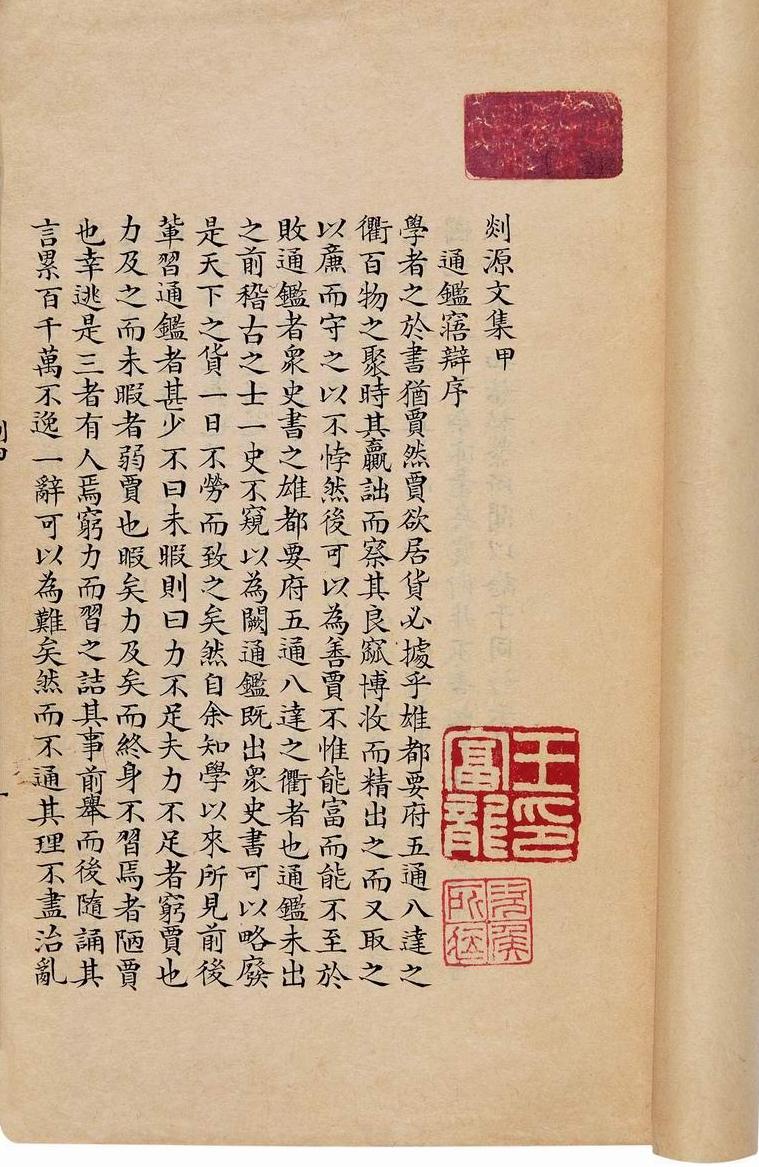 剡源文集甲
通鑑寤辯序
學者之於書猶賈然賈欲居貨必據乎雄都要府五通八達之
衢百物之聚時其贏詘而察其良窳博收而精出之而又取之
以廉而守之以不悖然後可以為善賈不惟能富而能不至於
敗通鑑者衆史書之雄都要府五通八達之衢者也通鑑未出
之前稽古之士一史不窺以為闕通鑑既出衆史書可以略廢
是天下之貨一日不勞而致之矣然自余知學以來所見前後
軰習通鑑者甚少不曰未暇則曰力不足夫力不足者窮賈也
力及之而未暇者弱賈也暇矣力及矣而終身不習焉者陋賈
也幸逃是三者有人焉窮力而習之詰其事前舉而後隨誦其
言累百千萬不逸一辭可以為難矣然而不通其理不盡治亂
王富龍印